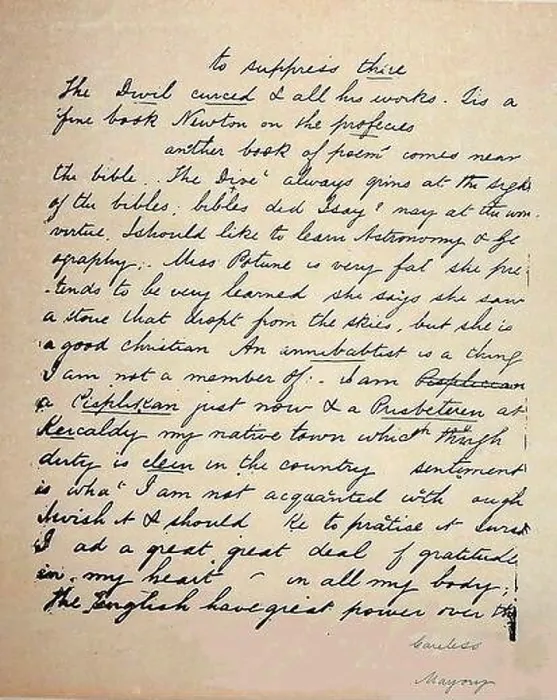 to suppress thire
The Divil curced & all his works. Tis a
fine book Newton on the profecies
another book of poem comes near
the bible. The Dive always grins at the sight
of the bibles; bibles did I say? nay at the
virtue. I should like to learn Astronomy & Ge
ography. Miss Potune is very fat she pre
-tends to be very learned she says she saw
a stone that dropt from the skies, but she is
a good christian An annibabtist is a thing
I am not a member of. I am
a Pisplikan just now & a Prisbeteren at
Kercaldy my native town which though
dirty is clein in the country sentiment
is what I am not acquanted with ough
I wish it & should ke to pratise it
I ad a great great deal f gratitude
in my heart in all my body;
the English have great power over the
Careless